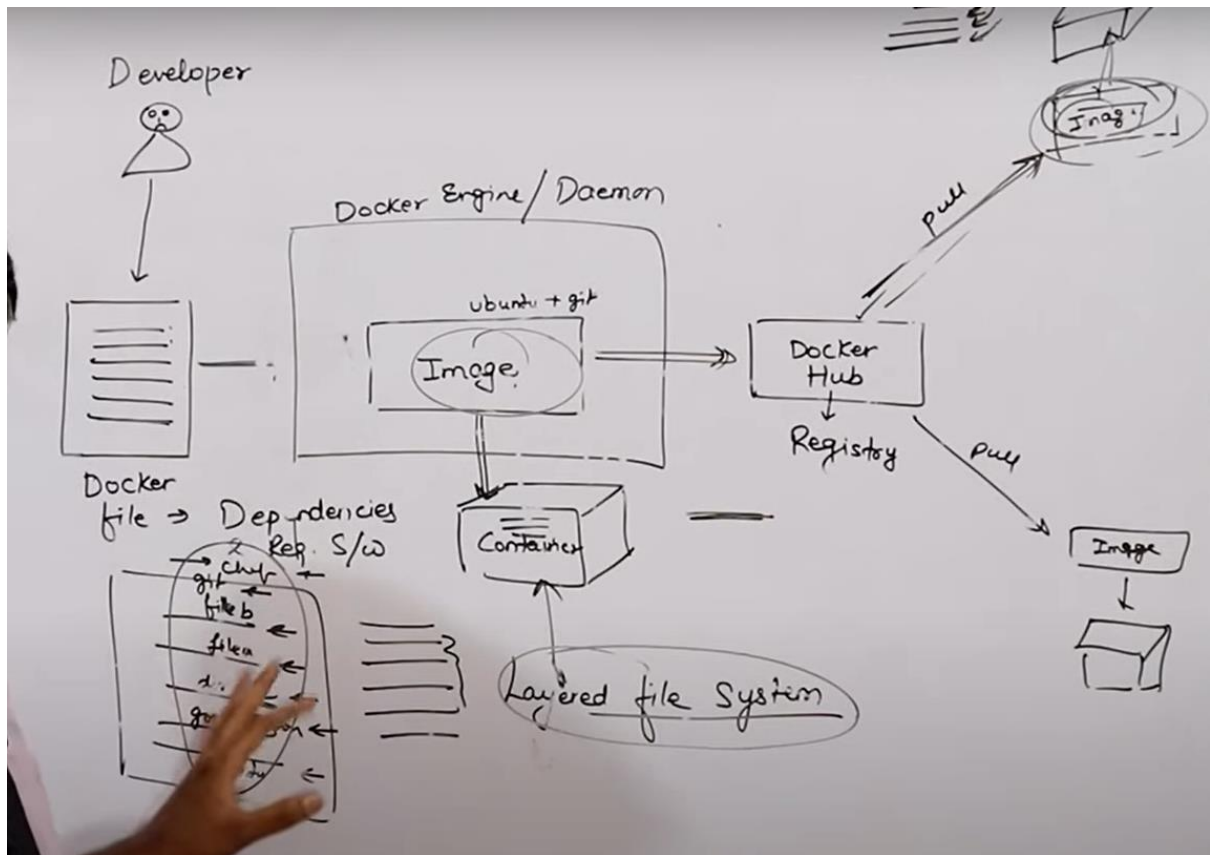 Developer
Docker Engine / Daemon
Ubuntu + git
Image
Docker
Hub
Registry
Pull
Imag.
Pull
Image
Docker
file → Dependencies
& Req. S/W
Chef
git
file b
file a
Container
Layered file System